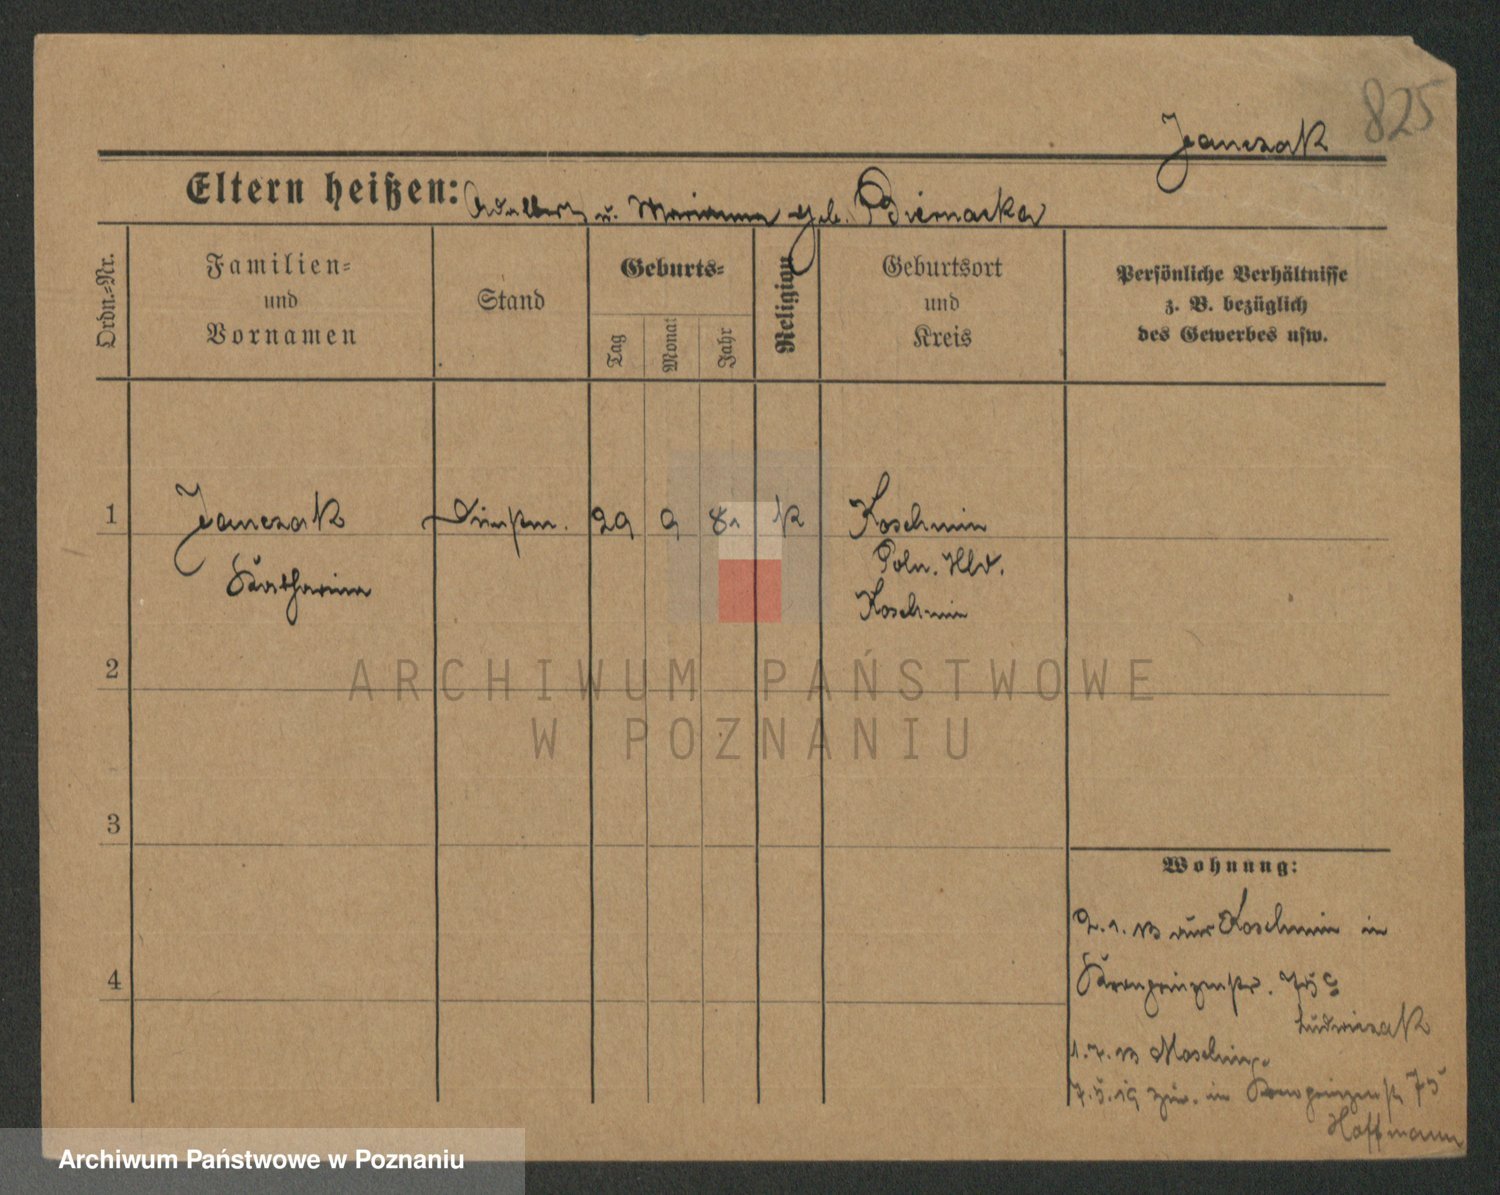 825
Janczak
Eltern heißen: Adalbert u. Marianna geb. Biernacka
Ordn.-Nr.
Familien-
und
Vornamen
Stand
Geburts-
Tag
Monat
Jahr
Religion
Geburtsort
und
Kreis
Persönliche Verhältnisse
z. B. bezüglich
des Gewerbes usw.
1 Janczak Dienstm. 29 9 81 K Koschmin
Katharina
Poln. Hld.
Koschmin
2
3
4
Wohnung:
2.1.13 aus Koschmin in
Kronprinzenstr. 75
Ludwiczak
1.7.13
in Kronprinzenstr 75
Hoffmann
ARCHIWUM PAŃSTWOWE
W POZNANIU
Archiwum Państwowe w Poznaniu